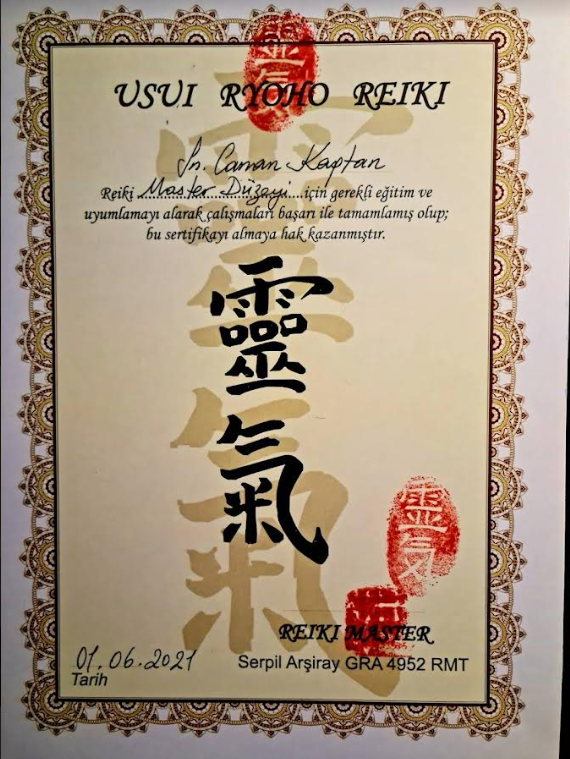 靈氣
USUI RYOHO REIKI
Sn. Caman Kaptan
Reiki Master Düzeyi için gerekli eğitim ve
uyumlamayı alarak çalışmaları başarı ile tamamlamış olup;
bu sertifikayı almaya hak kazanmıştır.
靈氣
靈氣
霊気
REIKI MASTER
01.06.2021
Serpil Arşiray GRA 4952 RMT
Tarih